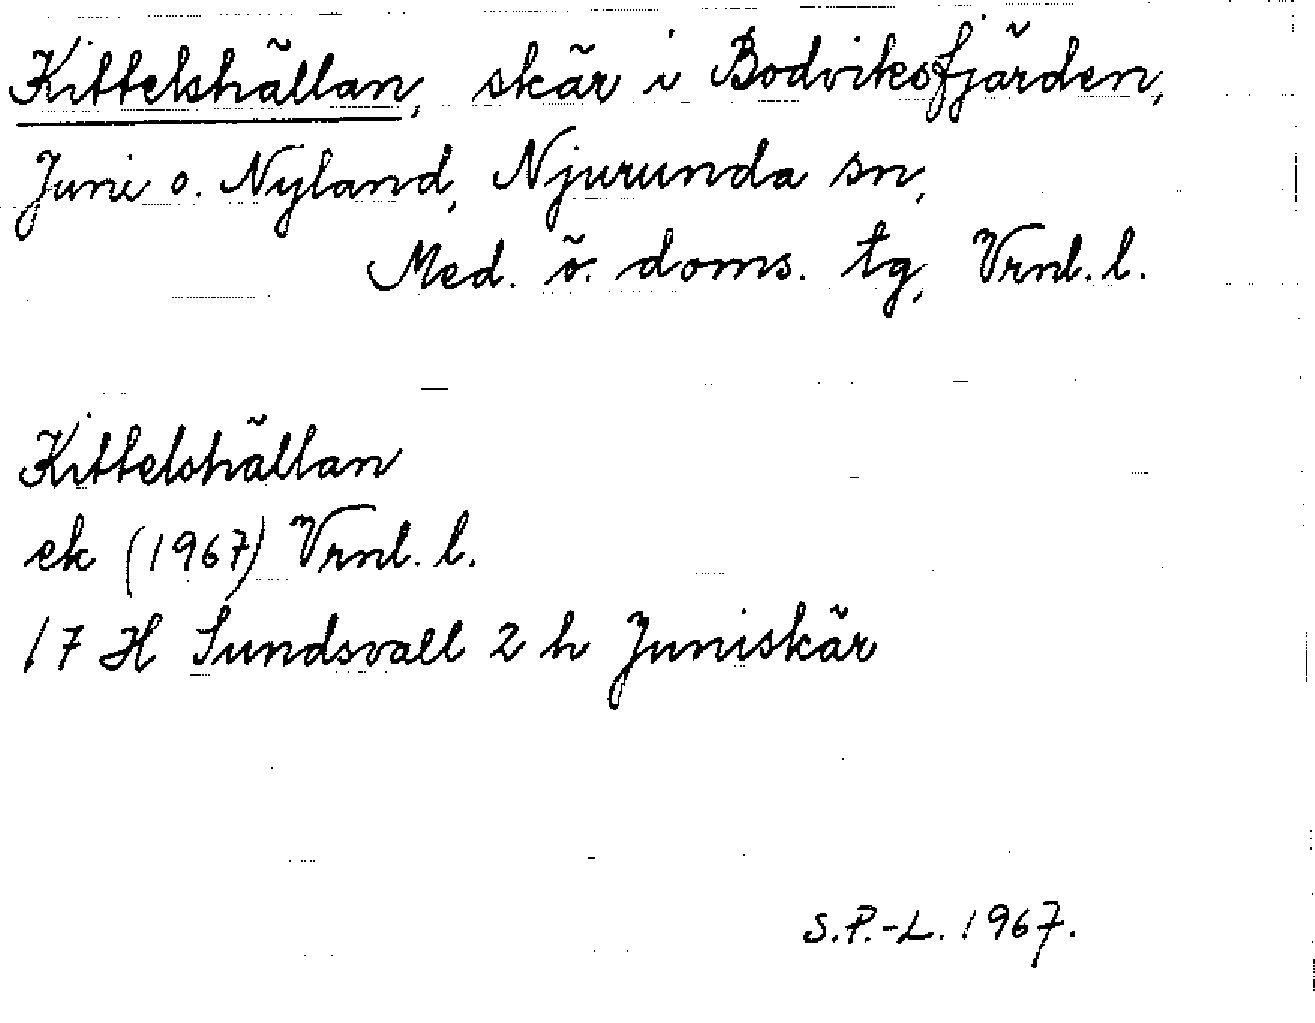 Kittelshällan, skär i Bodviksfjärden,
Juni o. Nyland, Njurunda sn,
Med. ö. doms. tg, Vrnl. l.
Kittelshällan
ek (1967) Vrnl. l.
17 H Sundsvall 2 h Juniskär
S.P.-L. 1967.